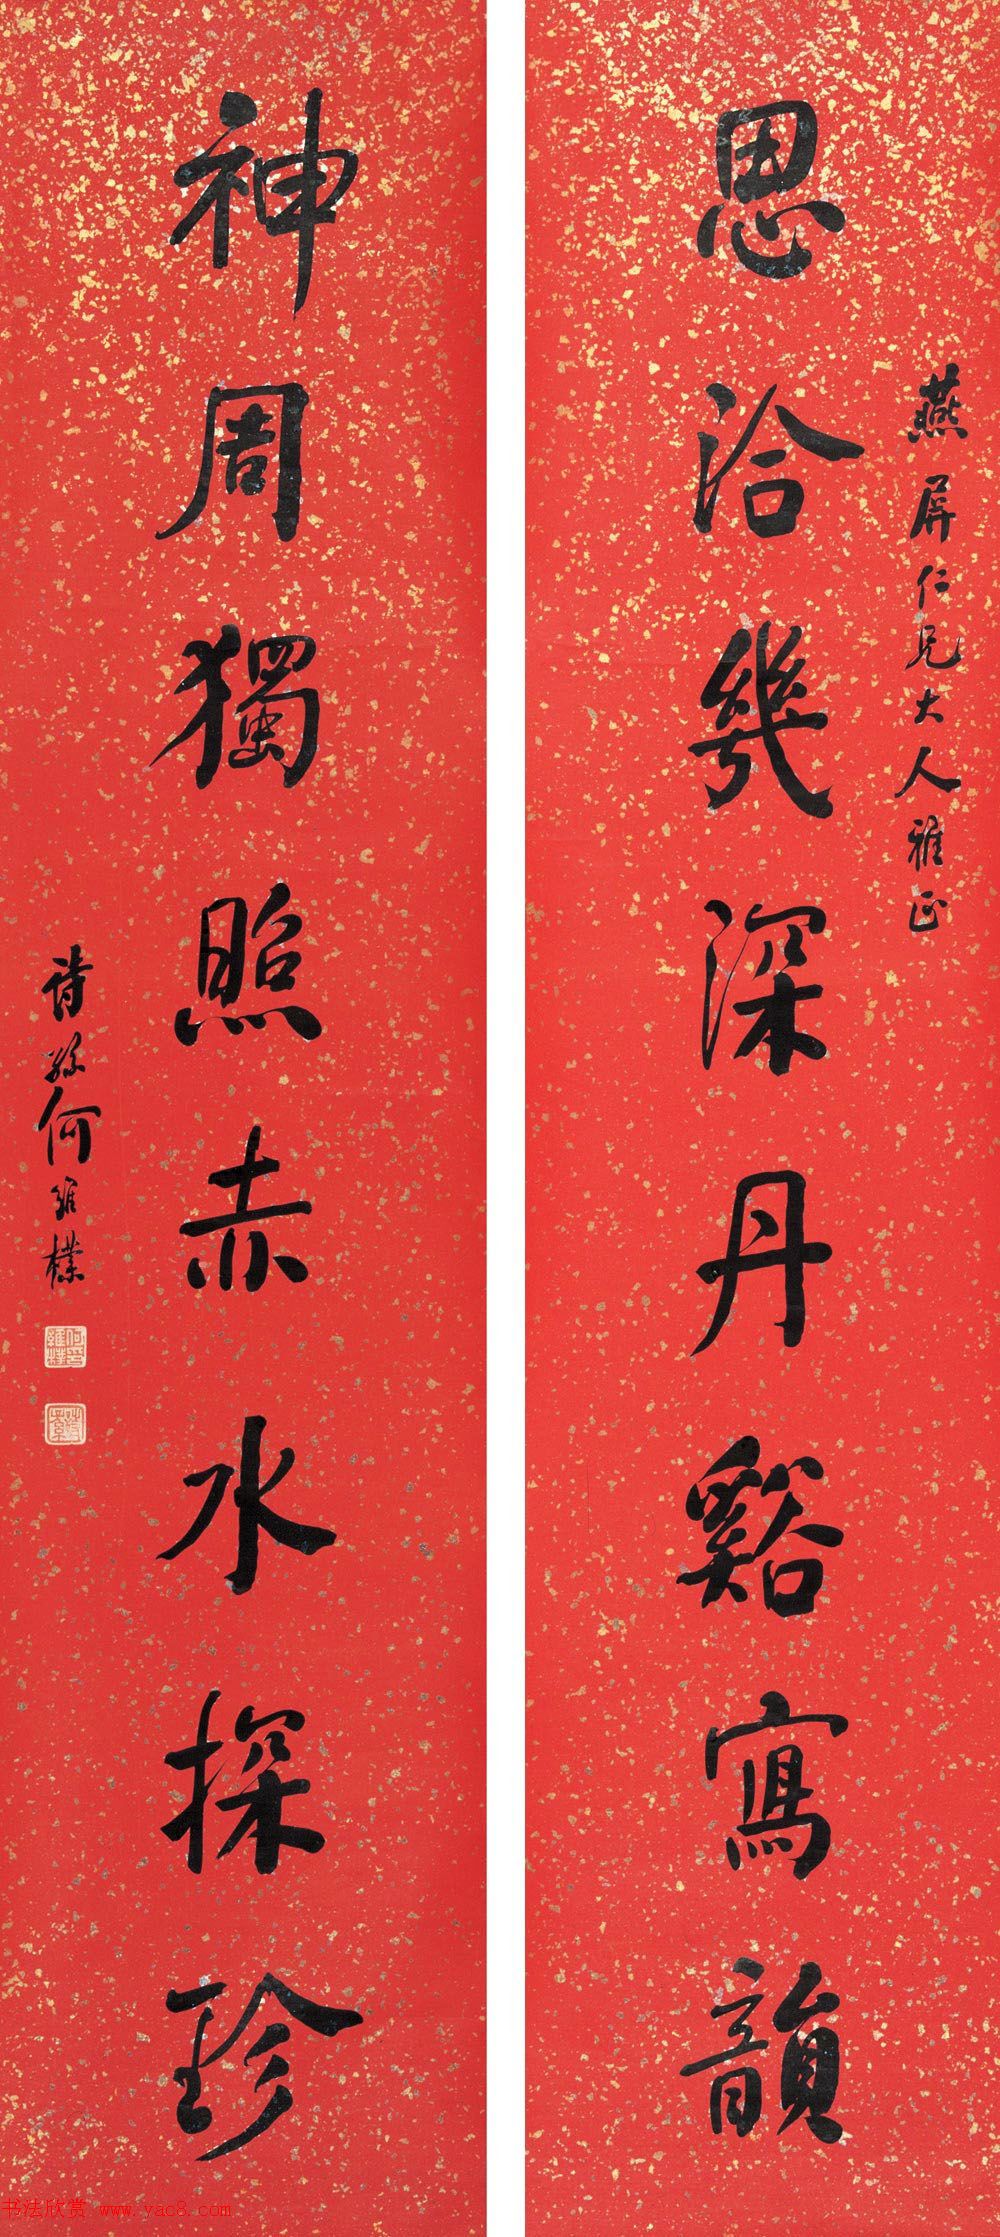 燕屏仁兄大人雅正
思洽幾深丹谿寫韻
神周獨照赤水探珍
詩孫何維樸
何印維樸
书法欣赏 www.yac8.com